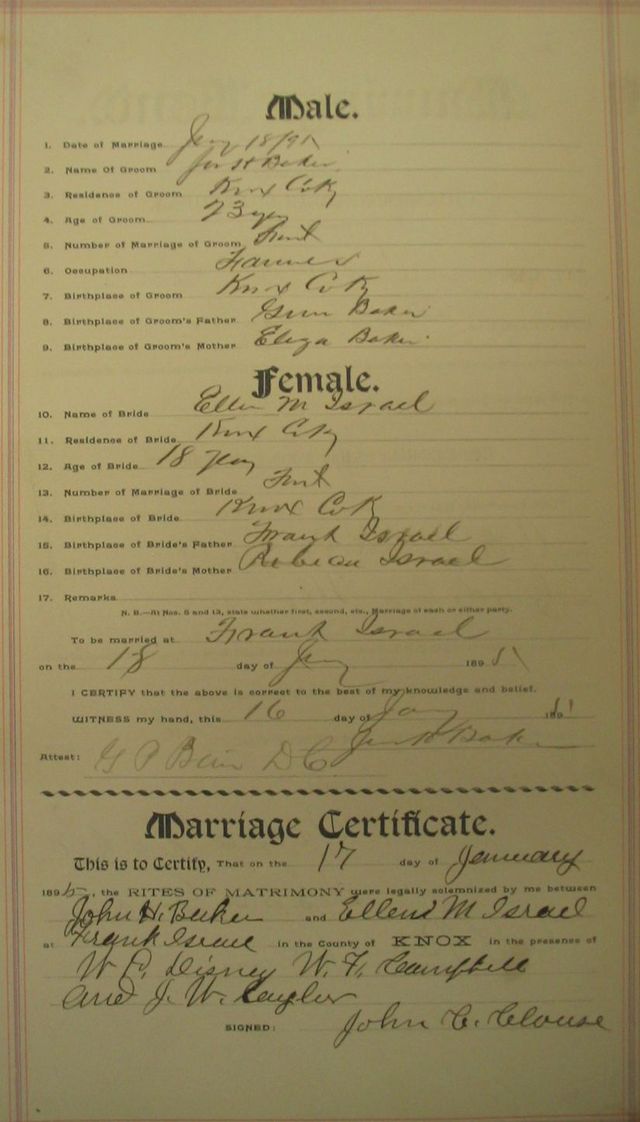 Male.
1. Date of Marriage Jany 18/95
2. Name Of Groom Jno H Baker
3. Residence of Groom Knox Co Ky
4. Age of Groom 23 yrs
5. Number of Marriage of Groom First
6. Occupation Farmer
7. Birthplace of Groom Knox Co K
8. Birthplace of Groom's Father Baker
9. Birthplace of Groom's Mother Eliza Baker
Female.
10. Name of Bride Ellen M Israel
11. Residence of Bride Knox Co Ky
12. Age of Bride 18 years
13. Number of Marriage of Bride First
14. Birthplace of Bride Knox Co K
15. Birthplace of Bride's Father Frank Israel
16. Birthplace of Bride's Mother Israel
17. Remarks
N. B.—At Nos. 5 and 13, state whether first, second, etc., Marriage of each or either party.
To be married at Frank Israel
on the 18 day of Jany 1895
I CERTIFY that the above is correct to the best of my knowledge and belief.
WITNESS my hand, this 16 day of Jany 189
Jno H Baker
Attest: G P Bain D C
Marriage Certificate.
This is to Certify, That on the 17 day of January
1895, the RITES OF MATRIMONY were legally solemnized by me between
John H. Baker and Ellen M Israel
at Frank Israel in the County of KNOX in the presence of
W. C. Disney W. F. Campbell
and J. W. Saylor
SIGNED: John C. Clouse